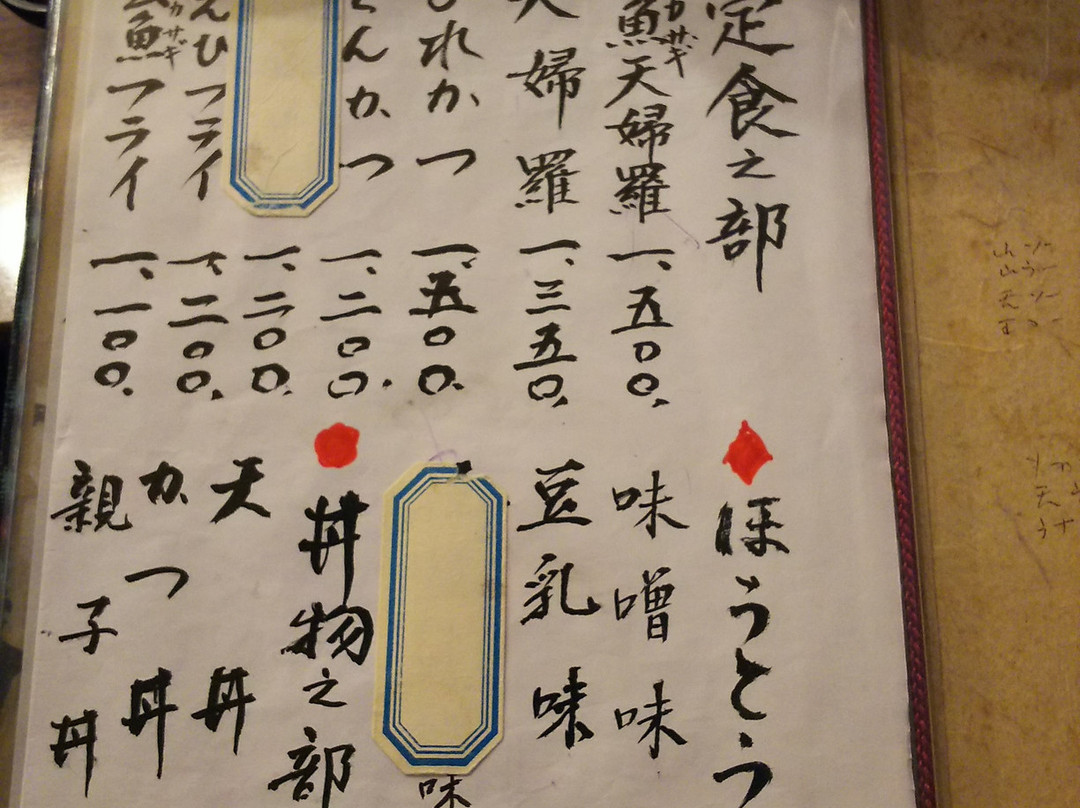 定食之部
魚天婦羅 一、五〇〇.
天婦羅 一、三五〇.
ひれかつ 一、五〇〇.
とんかつ 一、二〇〇.
一、二〇〇.
フライ 一、二〇〇.
魚フライ 一、一〇〇.
ほうとう
味噌味
豆乳味
味
丼物之部
天丼
かつ丼
親子丼